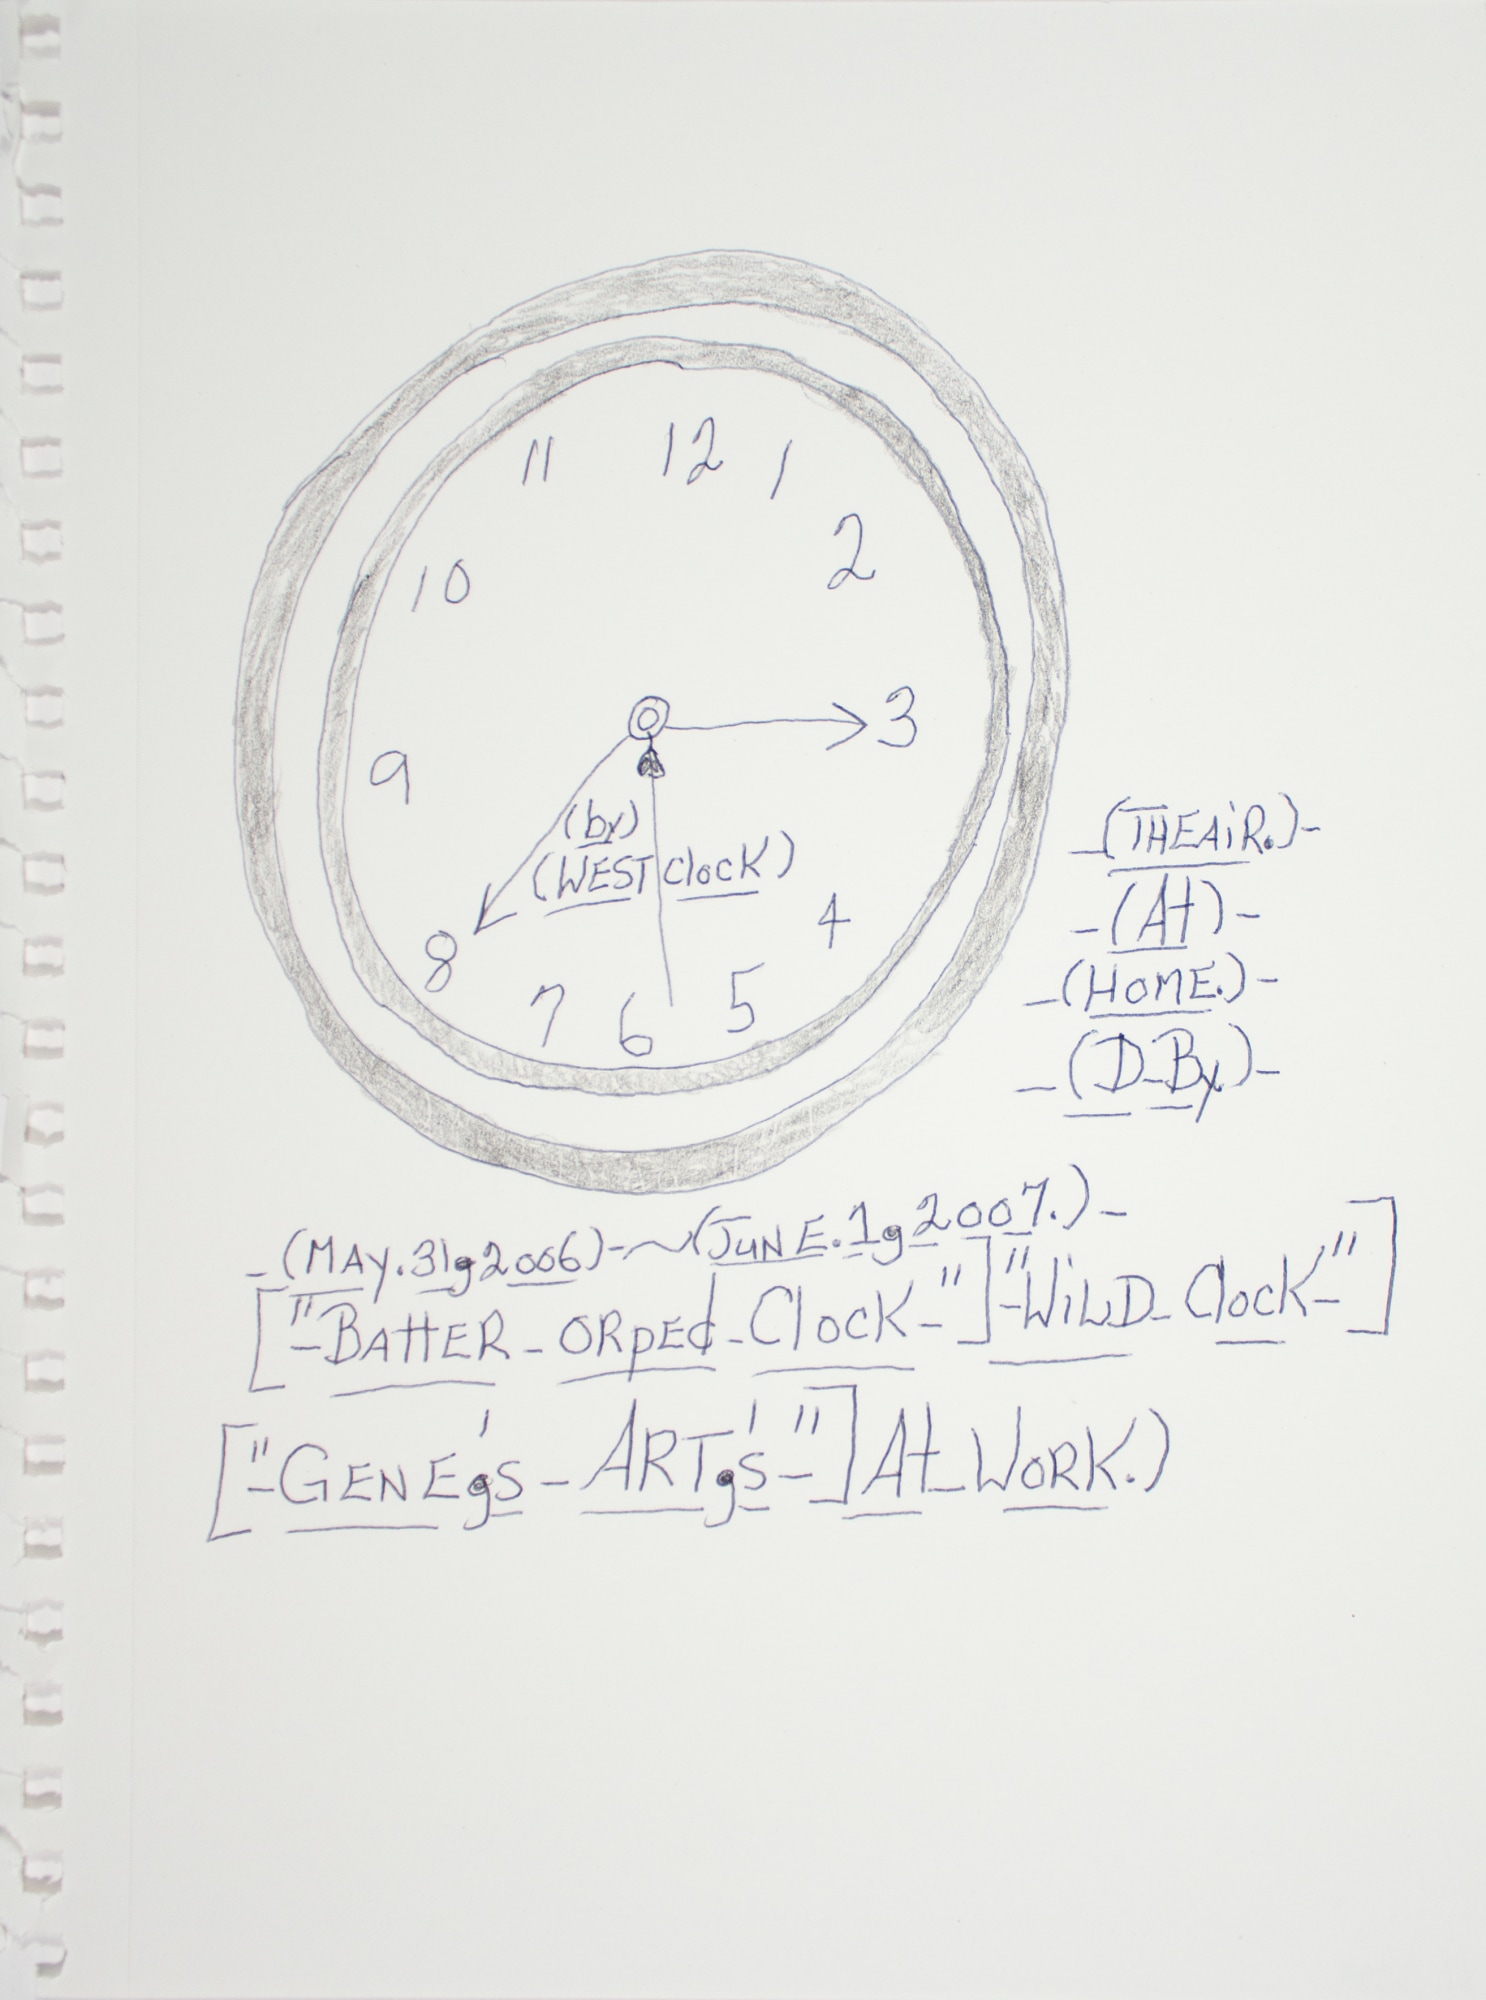 11 12 1
2
10
3
9
(by)
(WEST clocK)
4
8
7 6 5
_(THEAiR.)-
-(At)-
-(HOME.)-
-(D-By)-
-(MAY.31,2006)-~(JUNE.1,2007.)-
["-BAttER-ORpEd-ClocK-"]"-WiLD-ClocK-"]
["-GENE,'s-ART,'s-"]At-WORK.)